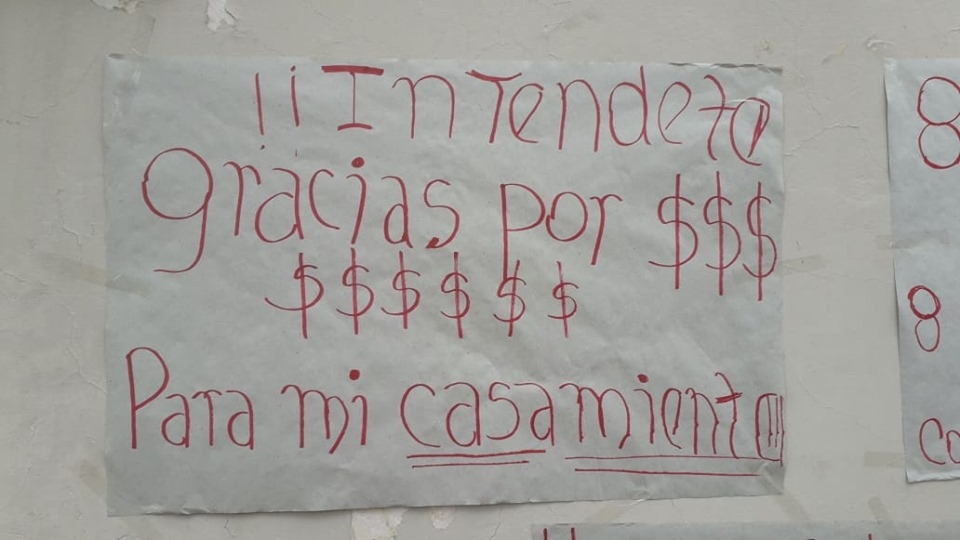 !¡Intendete
gracias por $$$
$$$$$$
Para mi casamiento
8
8
co